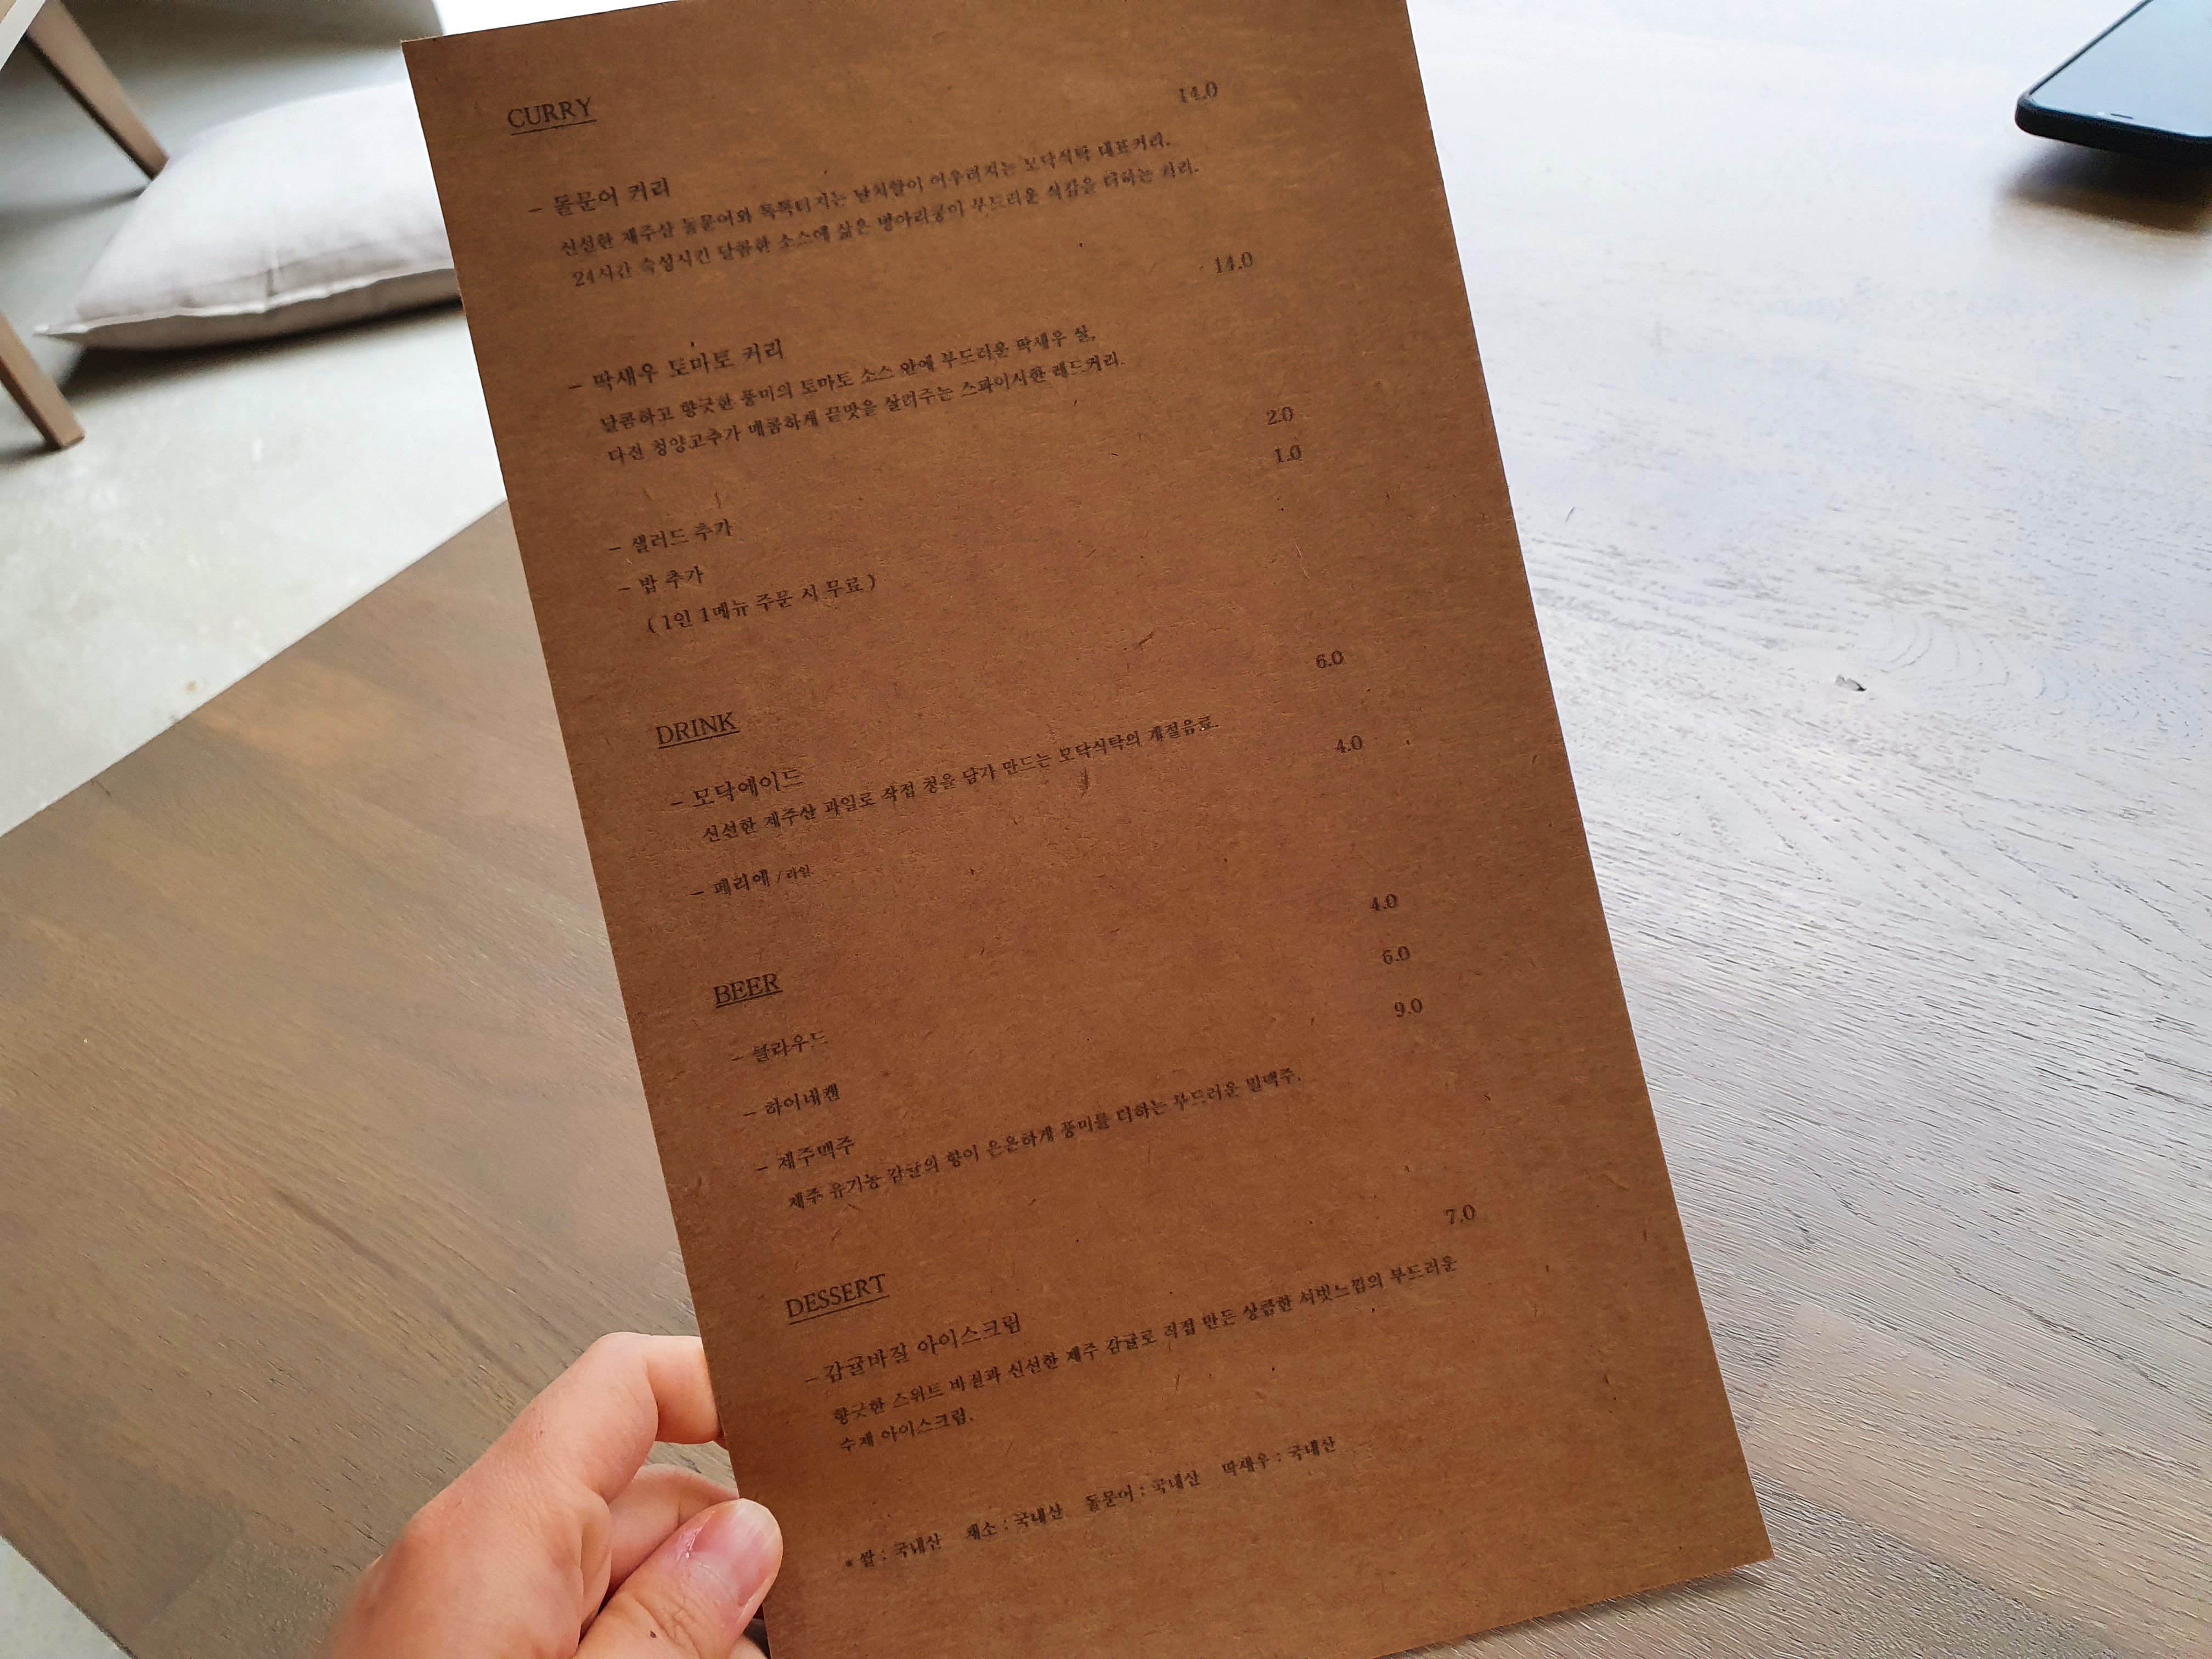 CURRY
- 돌문어 커리 14.0
신선한 제주산 돌문어와 톡톡터지는 날치알이 어우러지는 모닥식탁 대표커리.
24시간 숙성시킨 달콤한 소스에 삶은 병아리콩이 부드러운 식감을 더하는 커리.
- 딱새우 토마토 커리 14.0
달콤하고 향긋한 풍미의 토마토 소스 안에 부드러운 딱새우 살,
다진 청양고추가 매콤하게 끝맛을 살려주는 스파이시한 레드커리.
- 샐러드 추가 2.0
- 밥 추가 1.0
( 1인 1메뉴 주문 시 무료 )
DRINK
- 모닥에이드 6.0
신선한 제주산 과일로 직접 청을 담가 만드는 모닥식탁의 계절음료.
- 페리에 / 라임 4.0
BEER
- 클라우드 4.0
- 하이네켄 6.0
- 제주맥주 9.0
제주 유기농 감귤의 향이 은은하게 풍미를 더하는 부드러운 밀맥주.
DESSERT
- 감귤바질 아이스크림 7.0
향긋한 스위트 바질과 신선한 제주 감귤로 직접 만든 상큼한 셔벗느낌의 부드러운
수제 아이스크림.
* 쌀 : 국내산 채소 : 국내산 돌문어 : 국내산 딱새우 : 국내산